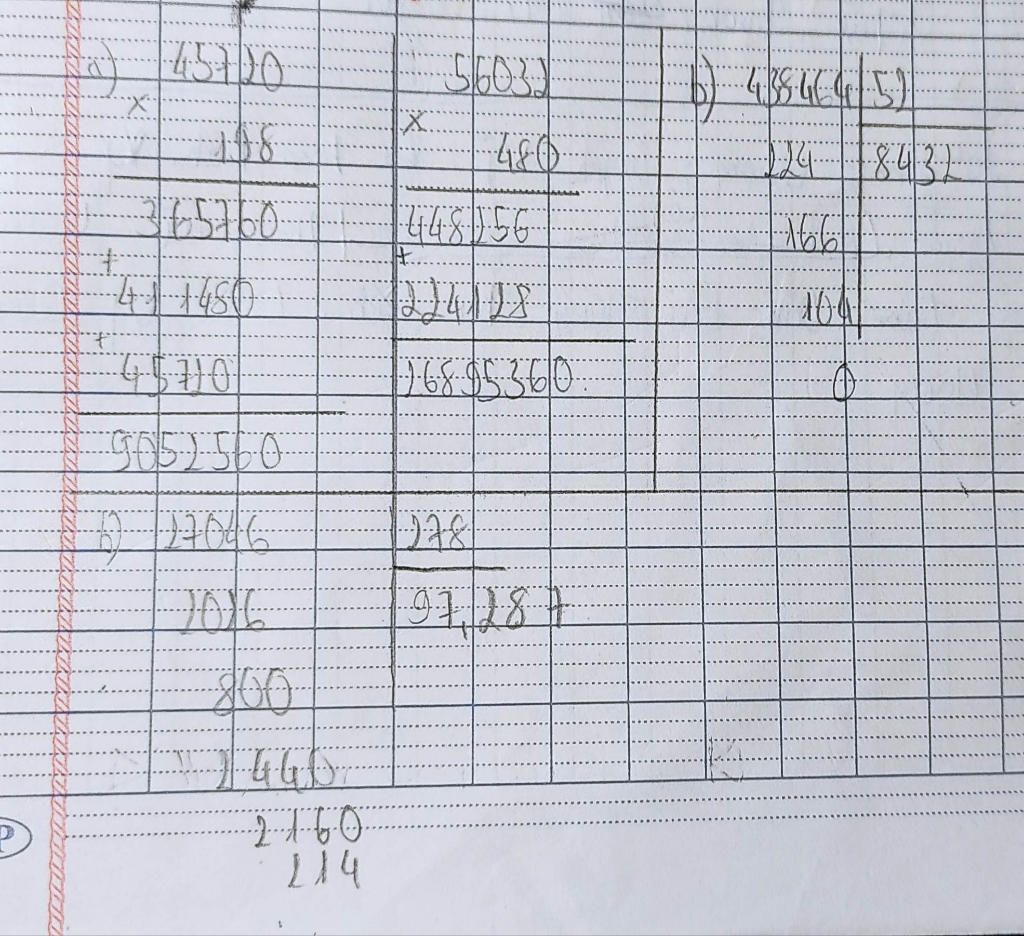 a) 45720
×
198
365760
+
411480
+
45720
9052560
56032
×
480
448256
+
224128
26895360
b) 438464 52
224 8432
166
104
0
b) 27046 278
2026 97,287
800
2440
2160
214